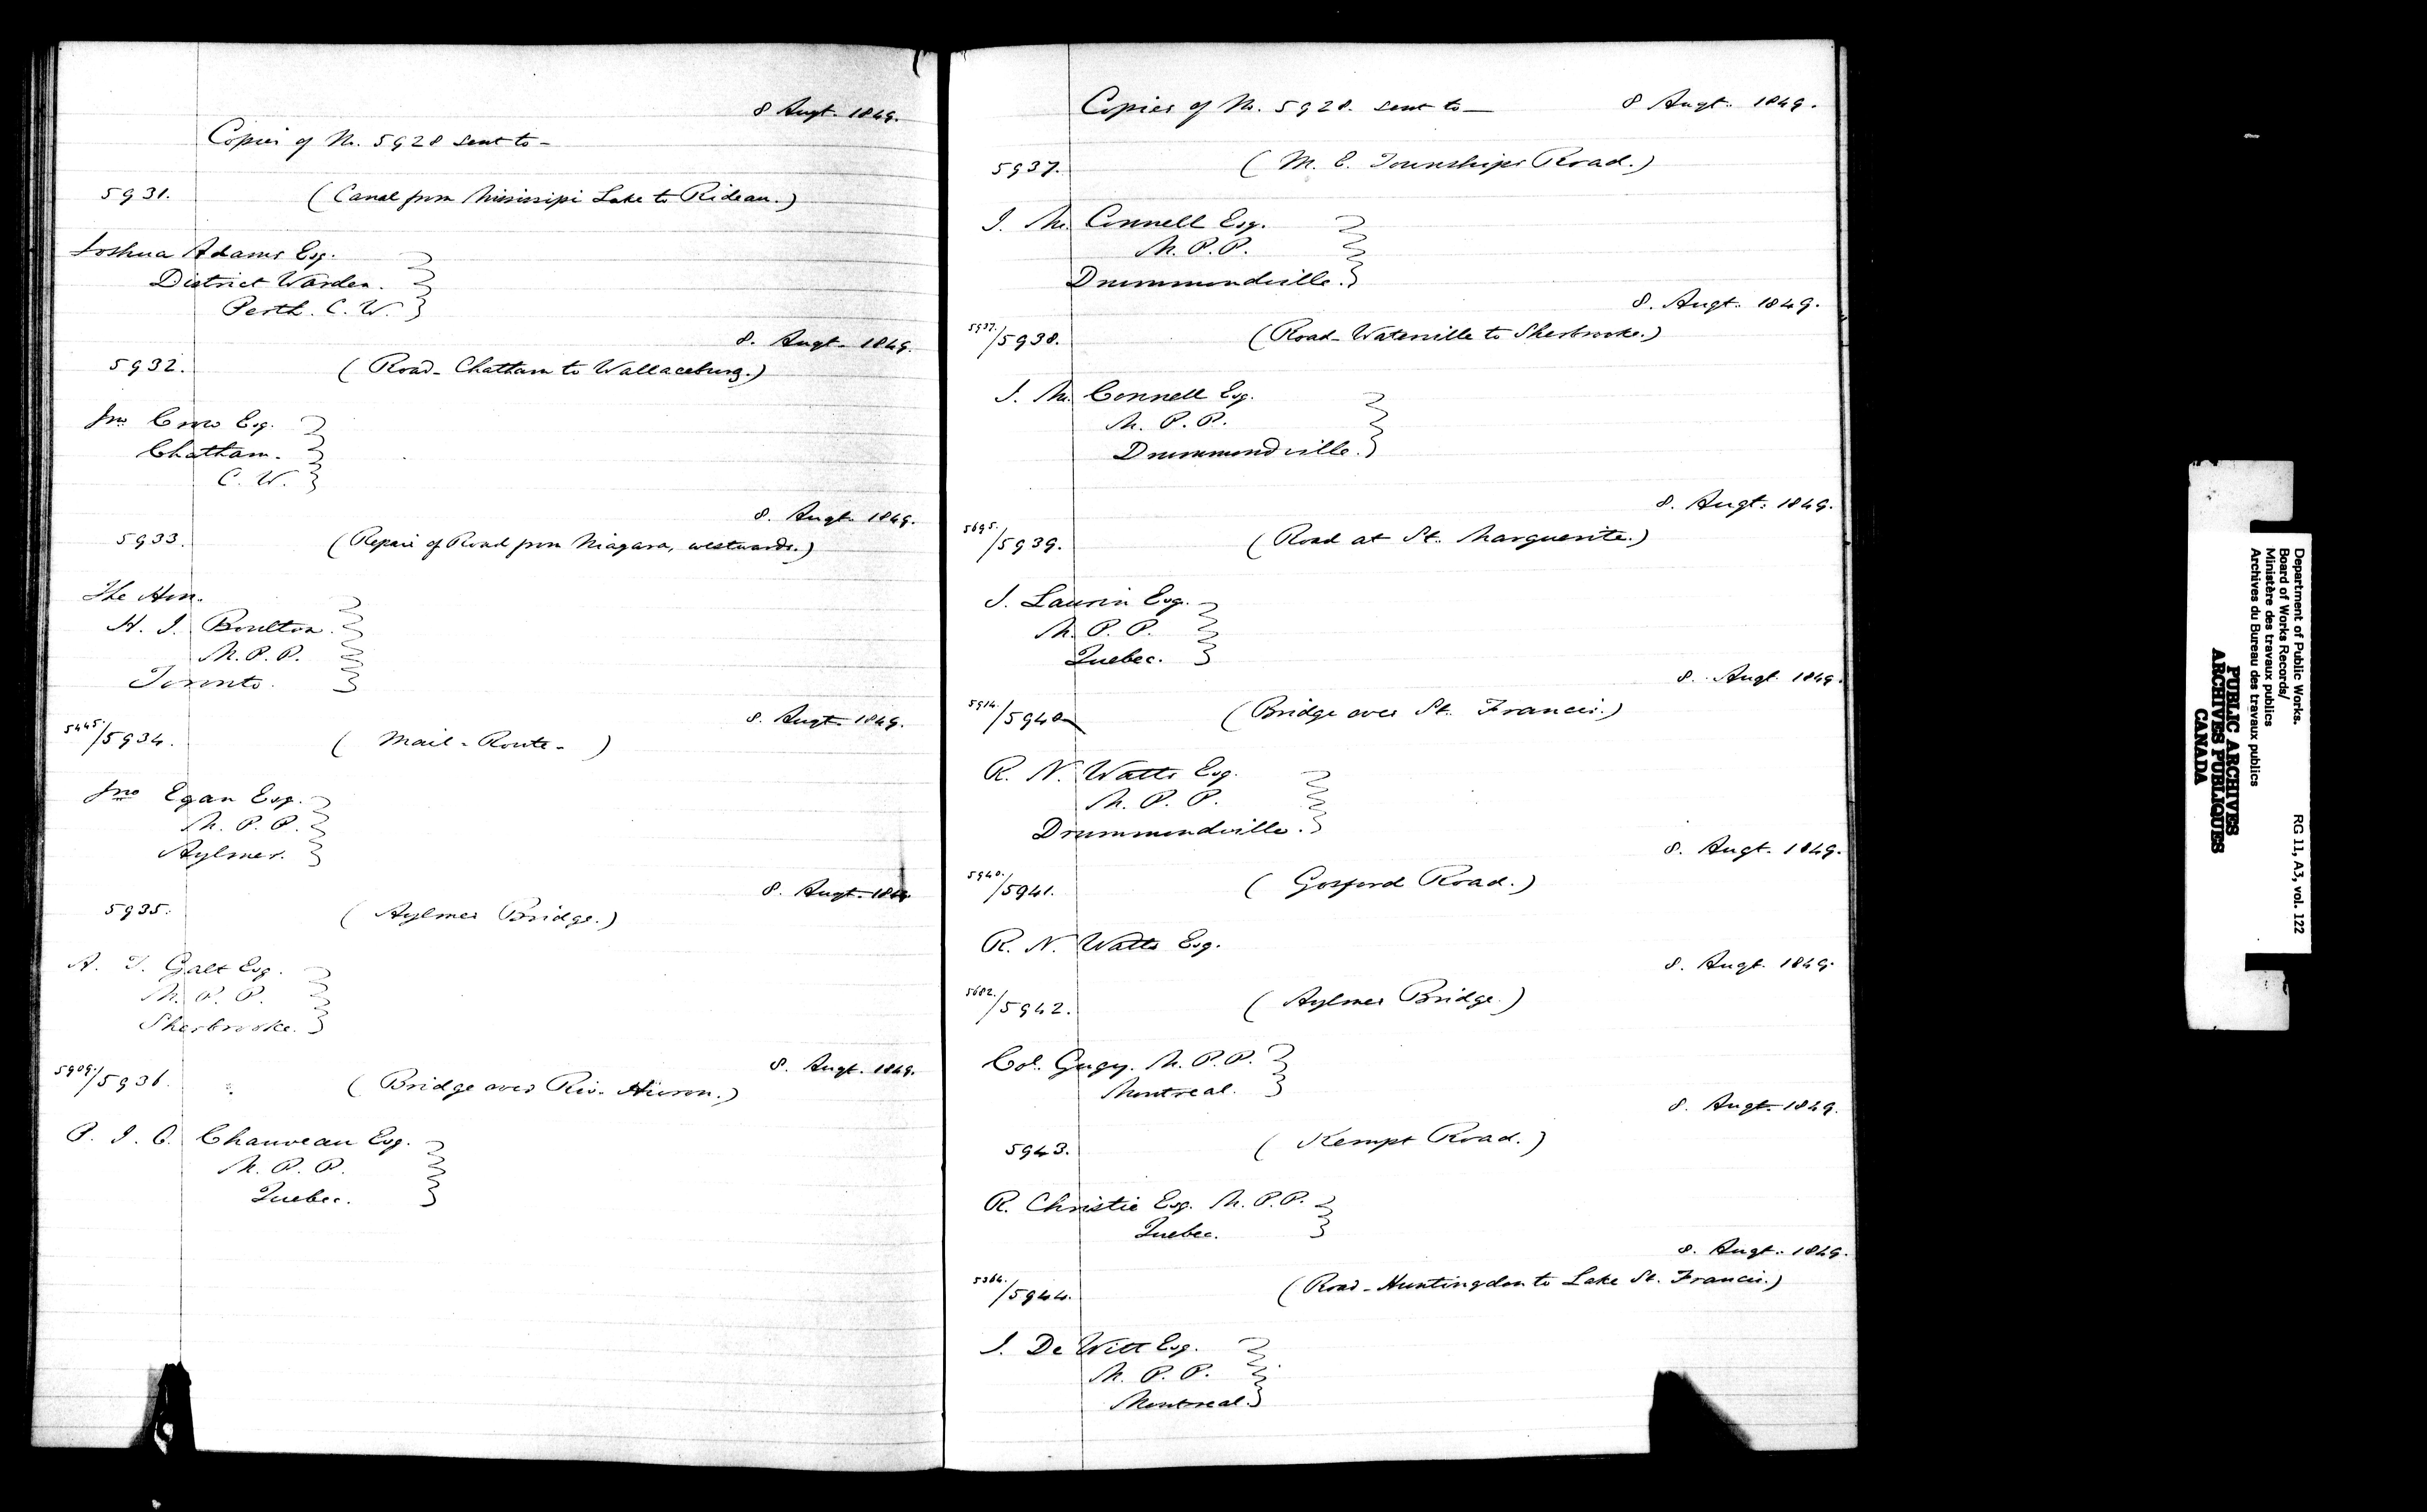 8 Augt. 1849.
Copies of No. 5928 sent to -
5931. (Canal from Mississipi Lake to Rideau.)
Joshua Adams Esq.
District Warden.
Perth. C. W.
8. Augt. 1849.
5932. (Road - Chatham to Wallaceburg.)
Jno Crow Esq.
Chatham.
C. W.
8. Augt. 1849.
5933. (Repair of Road from Niagara, westwards.)
The Hon.
H. J. Boulton.
M. P. P.
Toronto.
8. Augt. 1849.
5445./5934. ( Mail - Route - )
Jno Egan Esq.
M. P. P.
Aylmer.
8. Augt. 1849
5935. (Aylmer Bridge.)
A. T. Galt Esq.
M. P. P.
Sherbrooke.
8. Augt. 1849.
5909./5936. (Bridge over Riv. Huron.)
P. J. O. Chauveau Esq.
M. P. P.
Quebec.
Copies of No. 5928. sent to — 8 Augt. 1849.
5937. (M. E. Townships Road.)
J. Mc Connell Esq.
M. P. P.
Drummondville.
8. Augt. 1849.
5937./5938. (Road - Waterville to Sherbrooke.)
J. Mc Connell Esq.
M. P. P.
Drummondville.
8. Augt. 1849.
5695./5939. (Road at St. Marguerite.)
J. Laurin Esq.
M. P. P.
Quebec.
8. Augt. 1849.
5914./5940 (Bridge over St. Francis.)
R. N. Watts Esq.
M. P. P.
Drummondville.
8. Augt. 1849.
5940./5941. (Gosford Road.)
R. N. Watts Esq.
8. Augt. 1849.
5682./5942. (Aylmer Bridge.)
Col. Gugy. M. P. P.
Montreal.
8. Augt. 1849.
5943. (Kempt Road.)
R. Christie Esq. M. P. P.
Quebec.
8. Augt. 1849.
5364./5944. (Road - Huntingdon to Lake St. Francis.)
J. De Witt Esq.
M. P. P.
Montreal.
Department of Public Works. RG 11, A3, vol. 122
Board of Works Records/
Ministère des travaux publics
Archives du Bureau des travaux publics
PUBLIC ARCHIVES
ARCHIVES PUBLIQUES
CANADA